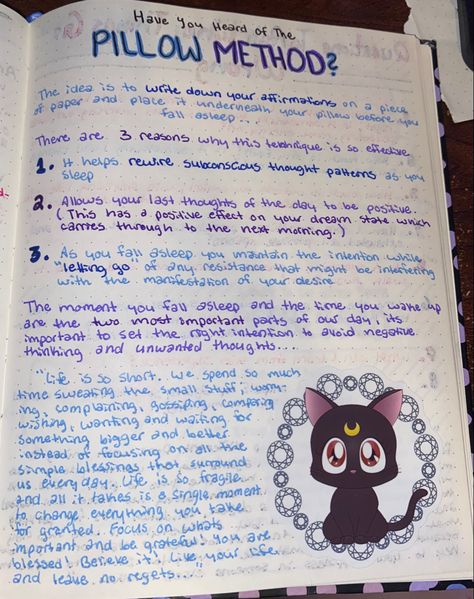 Have You Heard Of The
PILLOW METHOD?
The idea is to write down your affirmations on a piece
of paper and place it underneath your pillow before you
fall asleep...
There are 3 reasons why this technique is so effective
1. It helps rewire subconscious thought patterns as you
sleep
2. Allows your last thoughts of the day to be positive.
(This has a positive effect on your dream state which
carries through to the next morning.)
3. As you fall asleep you maintain the intention while
"letting go" of any resistance that might be interfering
with the manifestation of your desire
The moment you fall asleep and the time you wake up
are the two most important parts of our day, its
important to set the right intention to avoid negative
thinking and unwanted thoughts....
"Life is so short. We spend so much
time sweating the small stuff; worry-
ing, complaining, gossiping, comparing
wishing, wanting and waiting for
something bigger and better
instead of focusing on all the
simple blessings that surround
us everyday. Life is so fragile
and all it takes is a single moment
to change everything you take
for granted. Focus on whats
important and be grateful! You are
blessed! Believe it! Live your life
and leave no regets..."